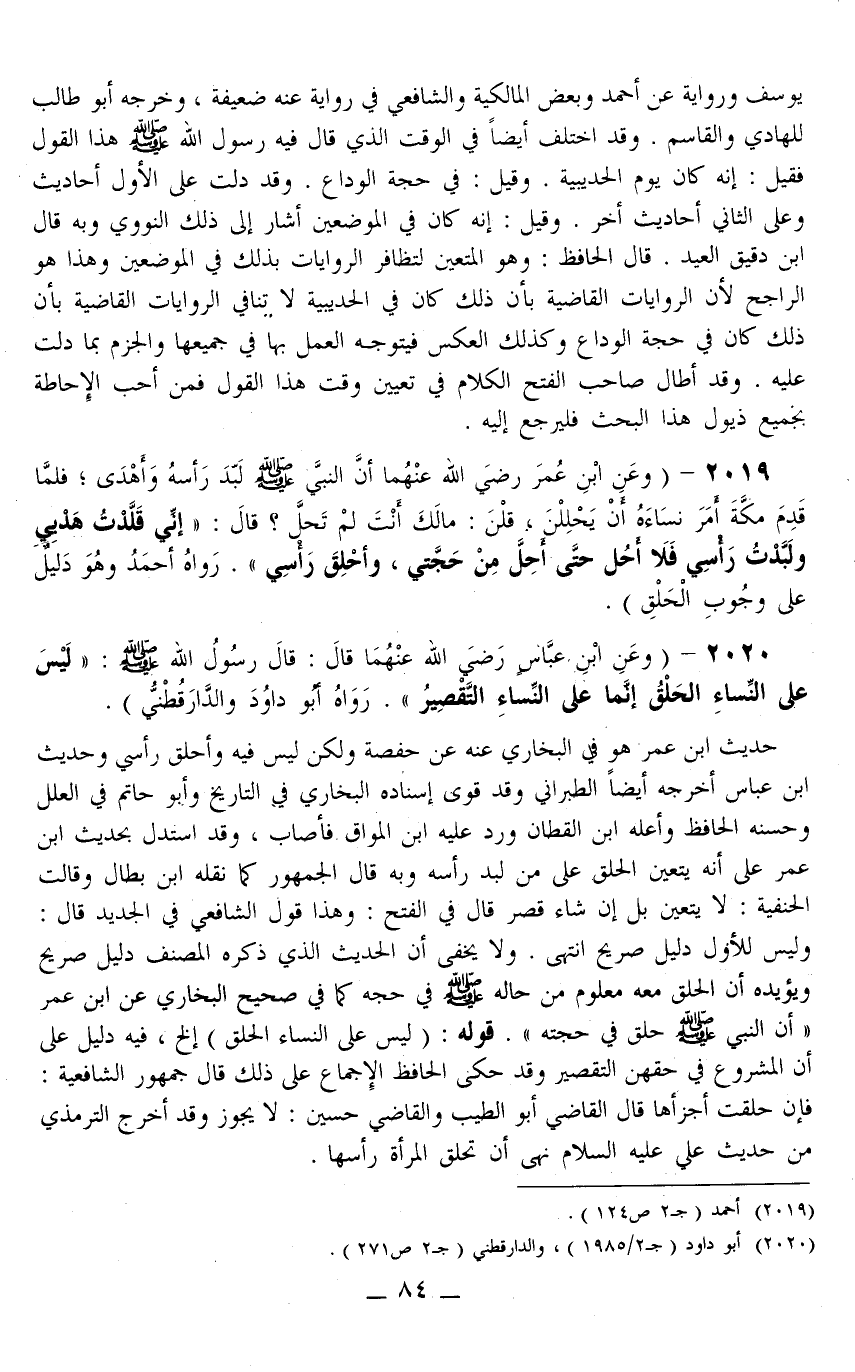 يوسف ورواية عن أحمد وبعض المالكية والشافعي في رواية عنه ضعيفة ، وخرجه أبو طالب
للهادي والقاسم . وقد اختلف أيضاً في الوقت الذي قال فيه رسول الله ﷺ هذا القول
فقيل : إنه كان يوم الحديبية . وقيل : في حجة الوداع . وقد دلت على الأول أحاديث
وعلى الثاني أحاديث أخر . وقيل : إنه كان في الموضعين أشار إلى ذلك النووي وبه قال
ابن دقيق العيد . قال الحافظ : وهو المتعين لتظافر الروايات بذلك في الموضعين وهذا هو
الراجح لأن الروايات القاضية بأن ذلك كان في الحديبية لا تنافي الروايات القاضية بأن
ذلك كان في حجة الوداع وكذلك العكس فيتوجه العمل بها في جميعها والجزم بما دلت
عليه . وقد أطال صاحب الفتح الكلام في تعيين وقت هذا القول فمن أحب الإحاطة
بجميع ذيول هذا البحث فليرجع إليه .
٢٠١٩ – ( وعَنِ ابْنِ عُمرَ رضيَ الله عنْهُما أنَّ النبيَّ ﷺ لَبّدَ رَأسهُ وَأَهْدَى ؛ فلمَّا
قَدِمَ مكَّةَ أمَرَ نساءَهُ أَنْ يَحْلِلْنَ ، قلْنَ : مالَكَ أَنْتَ لمْ تَحلَّ ؟ قالَ : « إنّي قَلَّدْتُ هَدْيِي
ولَبَّدْتُ رَأْسِي فَلَا أَحُل حتَّى أَحِلَّ مِنْ حَجَّتي ، وأحْلِقَ رَأْسِي » . رَواهُ أحمَدُ وهُوَ دَليلٌ
على وجُوبِ الْحَلْقِ ) .
٢٠٢٠ – ( وعَنِ ابْنِ عبَّاسٍ رَضيَ الله عنْهُمَا قالَ : قالَ رسُولُ الله ﷺ : « لَيْسَ
على النِّساءِ الحَلْقُ إنَّما على النِّساءِ التَّقْصِيرُ » . رَوَاهُ أبُو داوُدَ والدَّارَقُطْنيُّ ) .
حديث ابن عمر هو في البخاري عنه عن حفصة ولكن ليس فيه وأحلق رأسي وحديث
ابن عباس أخرجه أيضاً الطبراني وقد قوى إسناده البخاري في التاريخ وأبو حاتم في العلل
وحسنه الحافظ وأعله ابن القطان ورد عليه ابن المواق فأصاب ، وقد استدل بحديث ابن
عمر على أنه يتعين الحلق على من لبد رأسه وبه قال الجمهور كما نقله ابن بطال وقالت
الحنفية : لا يتعين بل إن شاء قصر قال في الفتح : وهذا قول الشافعي في الجديد قال :
وليس للأول دليل صريح انتهى . ولا يخفى أن الحديث الذي ذكره المصنف دليل صريح
ويؤيده أن الحلق معه معلوم من حاله ﷺ في حجه كما في صحيح البخاري عن ابن عمر
« أن النبي ﷺ حلق في حجته » . قوله : ( ليس على النساء الحلق ) إلخ ، فيه دليل على
أن المشروع في حقهن التقصير وقد حكى الحافظ الإجماع على ذلك قال جمهور الشافعية :
فإن حلقت أجزأها قال القاضي أبو الطيب والقاضي حسين : لا يجوز وقد أخرج الترمذي
من حديث علي عليه السلام نهى أن تحلق المرأة رأسها .
(٢٠١٩) أحمد ( جـ٢ ص١٢٤ ) .
(٢٠٢٠) أبو داود ( جـ١٩٨٥/٢ ) ، والدارقطني ( جـ٢ ص٢٧١ ) .
– ٨٤ –